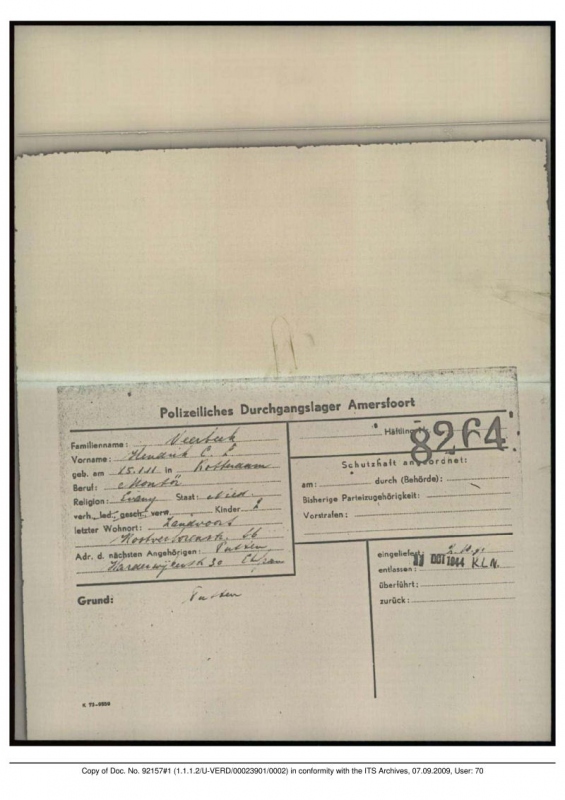 Polizeiliches Durchgangslager Amersfoort
Familienname:
Vorname: Hendrik C.
geb. am 15.1. in Rotterdam
Beruf: Montör
Religion: Evang Staat: Nied
verh. led. gesch. verw. Kinder 2
letzter Wohnort: Zandvoort
Adr. d. nächsten Angehörigen: Putten
Harderwijkerstr 30
Grund: Putten
Häftling-Nr.
8264
Schutzhaft angeordnet:
am: durch (Behörde):
Bisherige Parteizugehörigkeit:
Vorstrafen:
eingeliefert:
entlassen: OKT 1944 K.L.N.
überführt:
zurück:
Copy of Doc. No. 92157#1 (1.1.1.2/U-VERD/00023901/0002) in conformity with the ITS Archives, 07.09.2009, User: 70